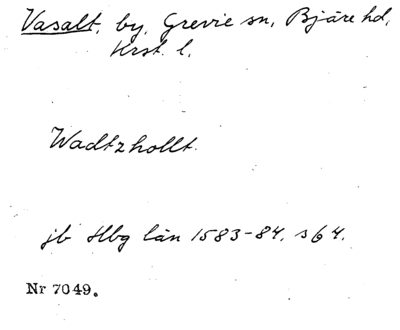 Vasalt, by, Grevie sn, Bjäre hd,
Krst. l.
Wadtzhollt.
jb Hbg län 1583-84, s 64.
Nr 7049.